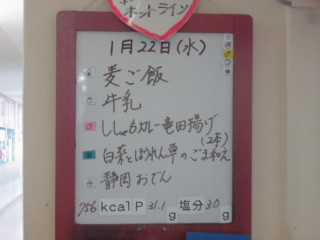 ホットライン
1月22日(水)
麦ご飯
牛乳
ししゃもカレー竜田揚げ
(2本)
白菜とほうれん草のごま和え
静岡おでん
756 kcal P 31.1 g 塩分 3.0 g